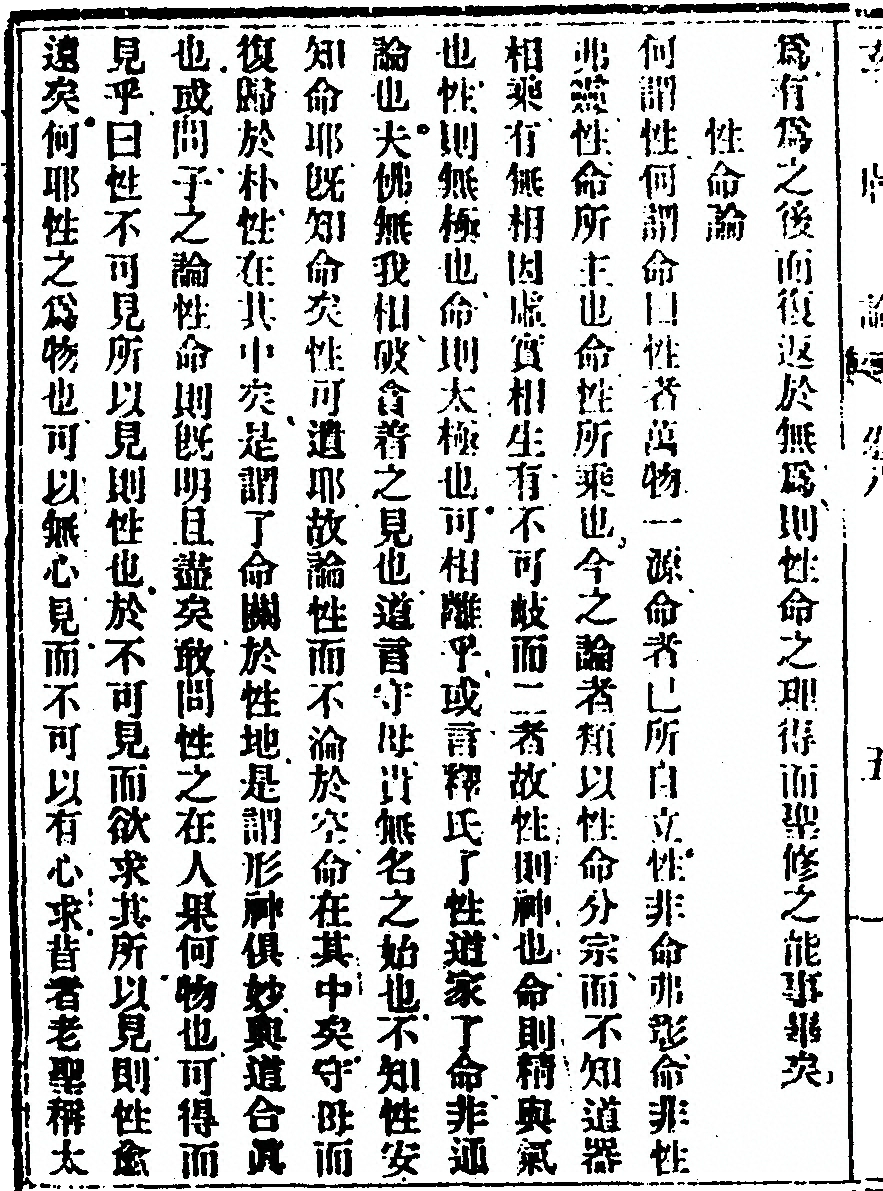 為有為之後而復返於無為則性命之理得而聖修之能事畢矣
性命論
何謂性何謂命曰性者萬物一源命者已所自立性非命弗彰命非性
弗靈性命所主也命性所乘也今之論者類以性命分宗而不知道器
相乘有無相因虛實相生有不可岐而二者故性則神也命則精與氣
也性則無極也命則太極也可相離乎或言釋氏了性道家了命非通
論也夫佛無我相破貪著之見也道言守母貴無名之始也不知性安
知命耶既知命矣性可遺耶故論性而不淪於空命在其中矣守母而
復歸於朴性在其中矣是謂了命關於性地是謂形神俱妙與道合眞
也或問子之論性命則既明且盡矣敢問性之在人果何物也可得而
見乎曰性不可見所以見則性也於不可見而欲求其所以見則性愈
遠矣何耶性之為物也可以無心見而不可以有心求昔者老聖稱太
論
卷八
五